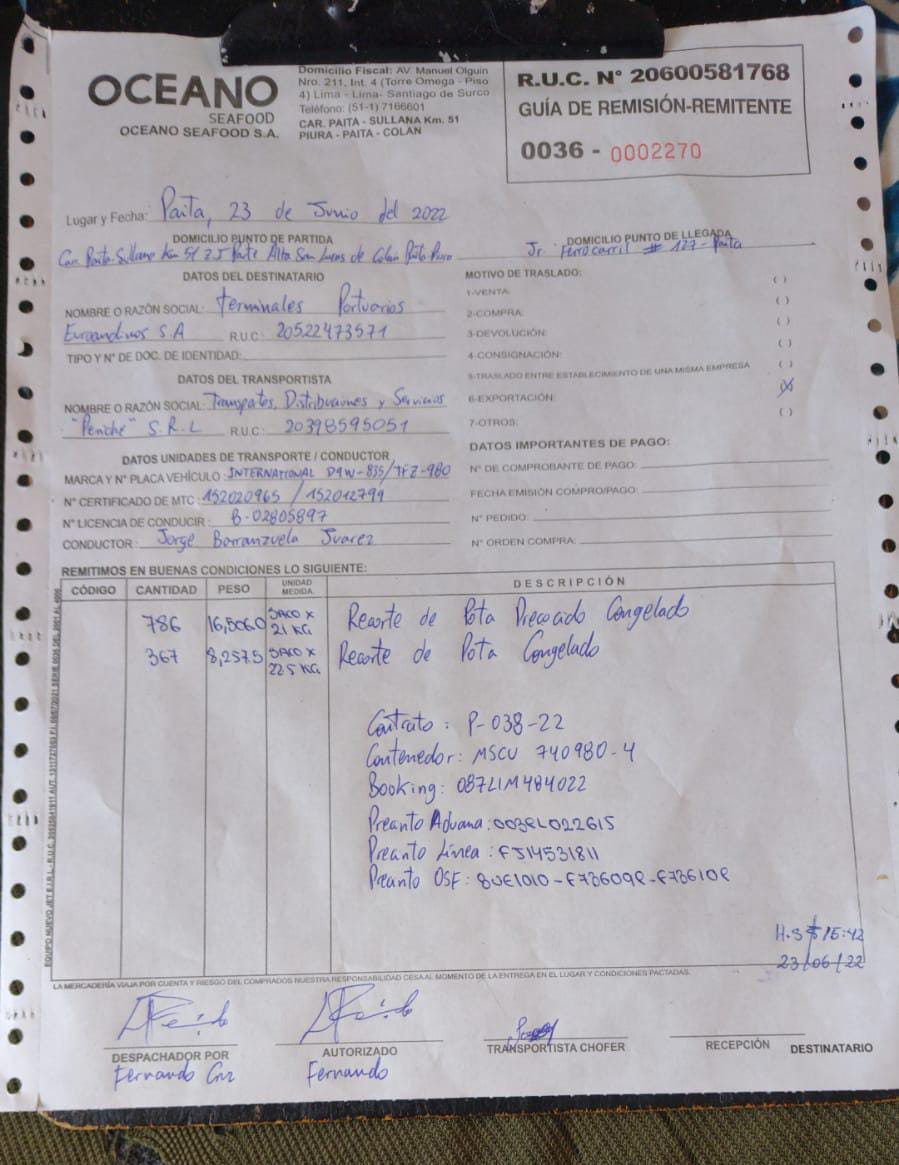 OCEANO
SEAFOOD
OCEANO SEAFOOD S.A.
Domicilio Fiscal: AV. Manuel Olguin
Nro. 211, Int. 4 (Torre Omega - Piso
4) Lima - Lima- Santiago de Surco
Teléfono: (51-1) 7166601
CAR. PAITA - SULLANA Km. 51
PIURA - PAITA - COLAN
R.U.C. N° 20600581768
GUÍA DE REMISIÓN-REMITENTE
0036 - 0002270
Lugar y Fecha: Paita, 23 de Junio del 2022
DOMICILIO PUNTO DE PARTIDA
Car. Paita Sullana Km 51 Parte Alta San Lucas de Colan Paita Piura
DOMICILIO PUNTO DE LLEGADA
Jr. Ferrocarril # 127 - Paita
DATOS DEL DESTINATARIO
NOMBRE O RAZÓN SOCIAL: Terminales Portuarios
Euroandinos S.A R.U.C: 20522473571
TIPO Y N° DE DOC. DE IDENTIDAD:
MOTIVO DE TRASLADO:
1-VENTA: ( )
2-COMPRA: ( )
3-DEVOLUCIÓN: ( )
4-CONSIGNACIÓN: ( )
5-TRASLADO ENTRE ESTABLECIMIENTO DE UNA MISMA EMPRESA ( )
6-EXPORTACIÓN: (X)
7-OTROS: ( )
DATOS DEL TRANSPORTISTA
NOMBRE O RAZÓN SOCIAL: Transpotes, Distribuciones y Servicios
"Peniche" S.R.L R.U.C: 20398595051
DATOS UNIDADES DE TRANSPORTE / CONDUCTOR
MARCA Y N° PLACA VEHÍCULO: INTERNATIONAL D9W-835/TFZ-980
N° CERTIFICADO DE MTC: 152020965 / 152012799
N° LICENCIA DE CONDUCIR: B-02805897
CONDUCTOR: Jorge Barranzuela Juarez
DATOS IMPORTANTES DE PAGO:
N° DE COMPROBANTE DE PAGO:
FECHA EMISIÓN COMPRO/PAGO:
N° PEDIDO:
N° ORDEN COMPRA:
REMITIMOS EN BUENAS CONDICIONES LO SIGUIENTE:
CÓDIGO CANTIDAD PESO UNIDAD MEDIDA. DESCRIPCIÓN
786 16,506.0 SACO X 21 KG Recorte de Pota Precocido Congelado
367 8,257.5 SACO X 22.5 KG Recorte de Pota Congelado
Contrato : P-038-22
Contenedor: MSCU 740980-4
Booking: 087LIM484022
Precinto Aduana: 003EL022615
Precinto Línea: FJ14531811
H.S 15:42
23/06/22
LA MERCADERÍA VIAJA POR CUENTA Y RIESGO DEL COMPRADOS NUESTRA RESPONSABILIDAD CESA AL MOMENTO DE LA ENTREGA EN EL LUGAR Y CONDICIONES PACTADAS.
DESPACHADOR POR
Fernando Cruz
AUTORIZADO
Fernando
TRANSPORTISTA CHOFER
RECEPCIÓN DESTINATARIO